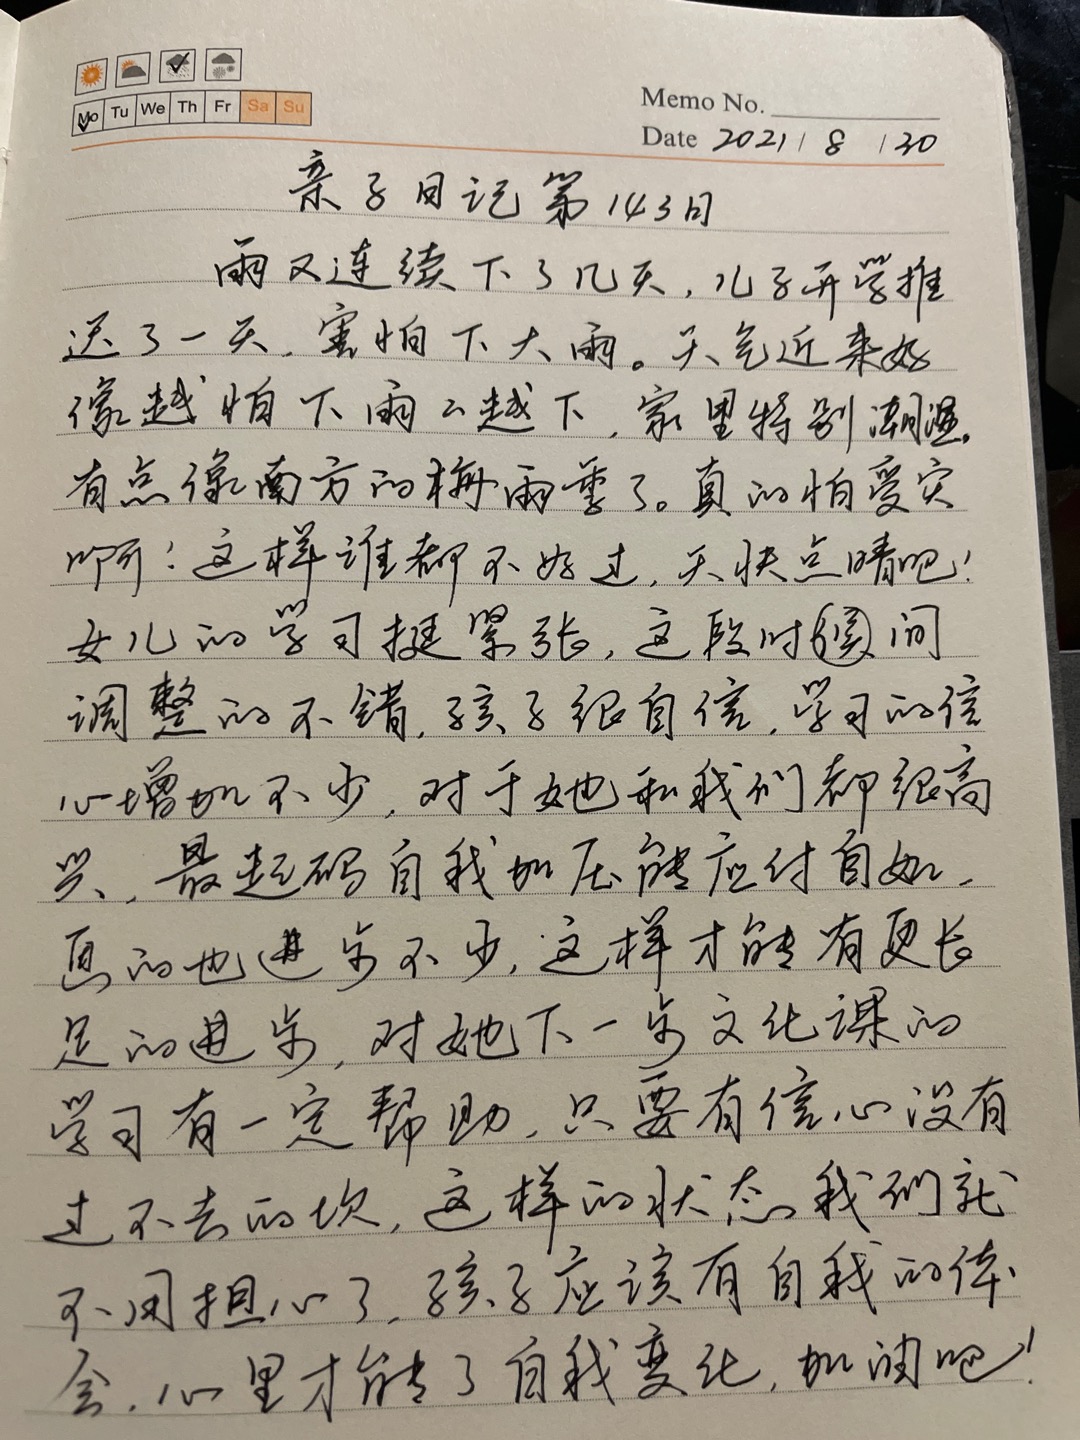 Mo Tu We Th Fr Sa Su
Memo No.
Date 2021/8/30
亲子日记第143日
雨又连续下了几天,儿子开学推
迟了一天,害怕下大雨。天气近来好
像越怕下雨么越下,家里特别潮湿,
有点像南方的梅雨季了。真的怕受灾
啊!这样谁都不好过,天快点晴吧!
女儿的学习挺紧张,这段时间
调整的不错,孩子很自信,学习的信
心增加不少,对于她和我们都很高
兴,最起码自我加压能应付自如,
画的也进步不少,这样才能有更长
足的进步,对她下一步文化课的
学习有一定帮助,只要有信心没有
过不去的坎,这样的状态我们就
不用担心了,孩子应该有自我的体
会,心里才能了自我变化,加油吧!